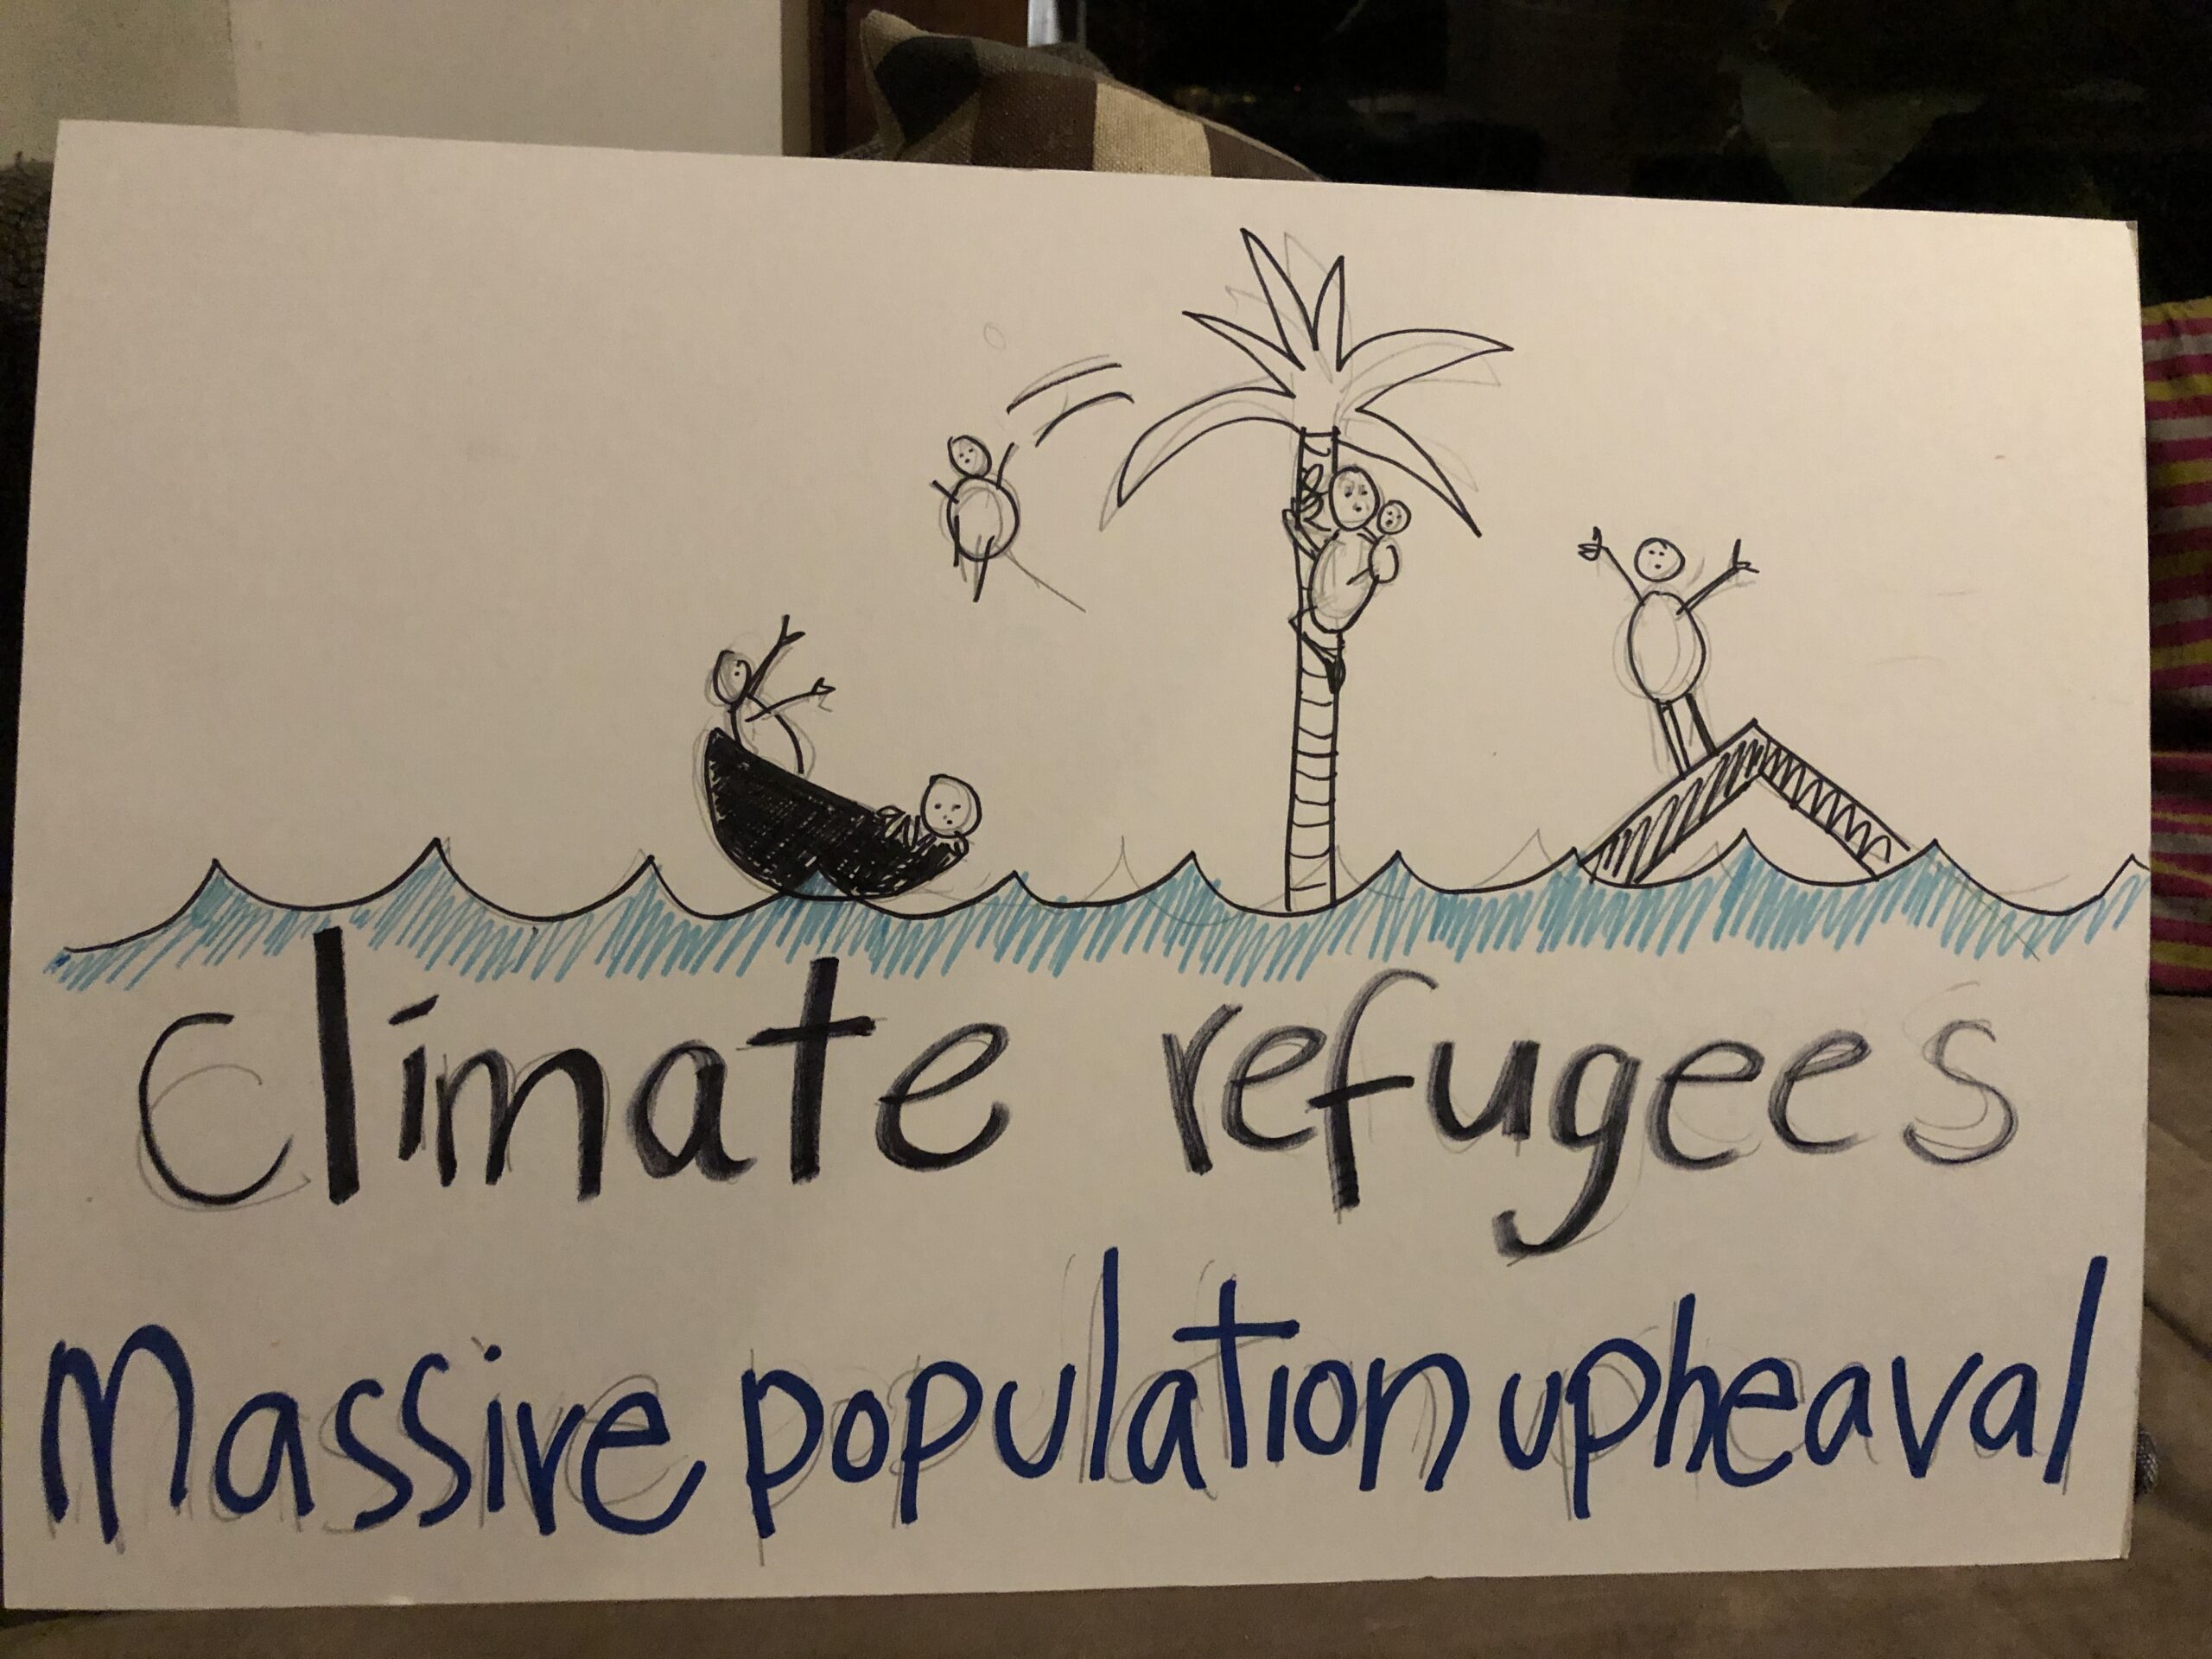 Climate refugees
Massive population upheaval